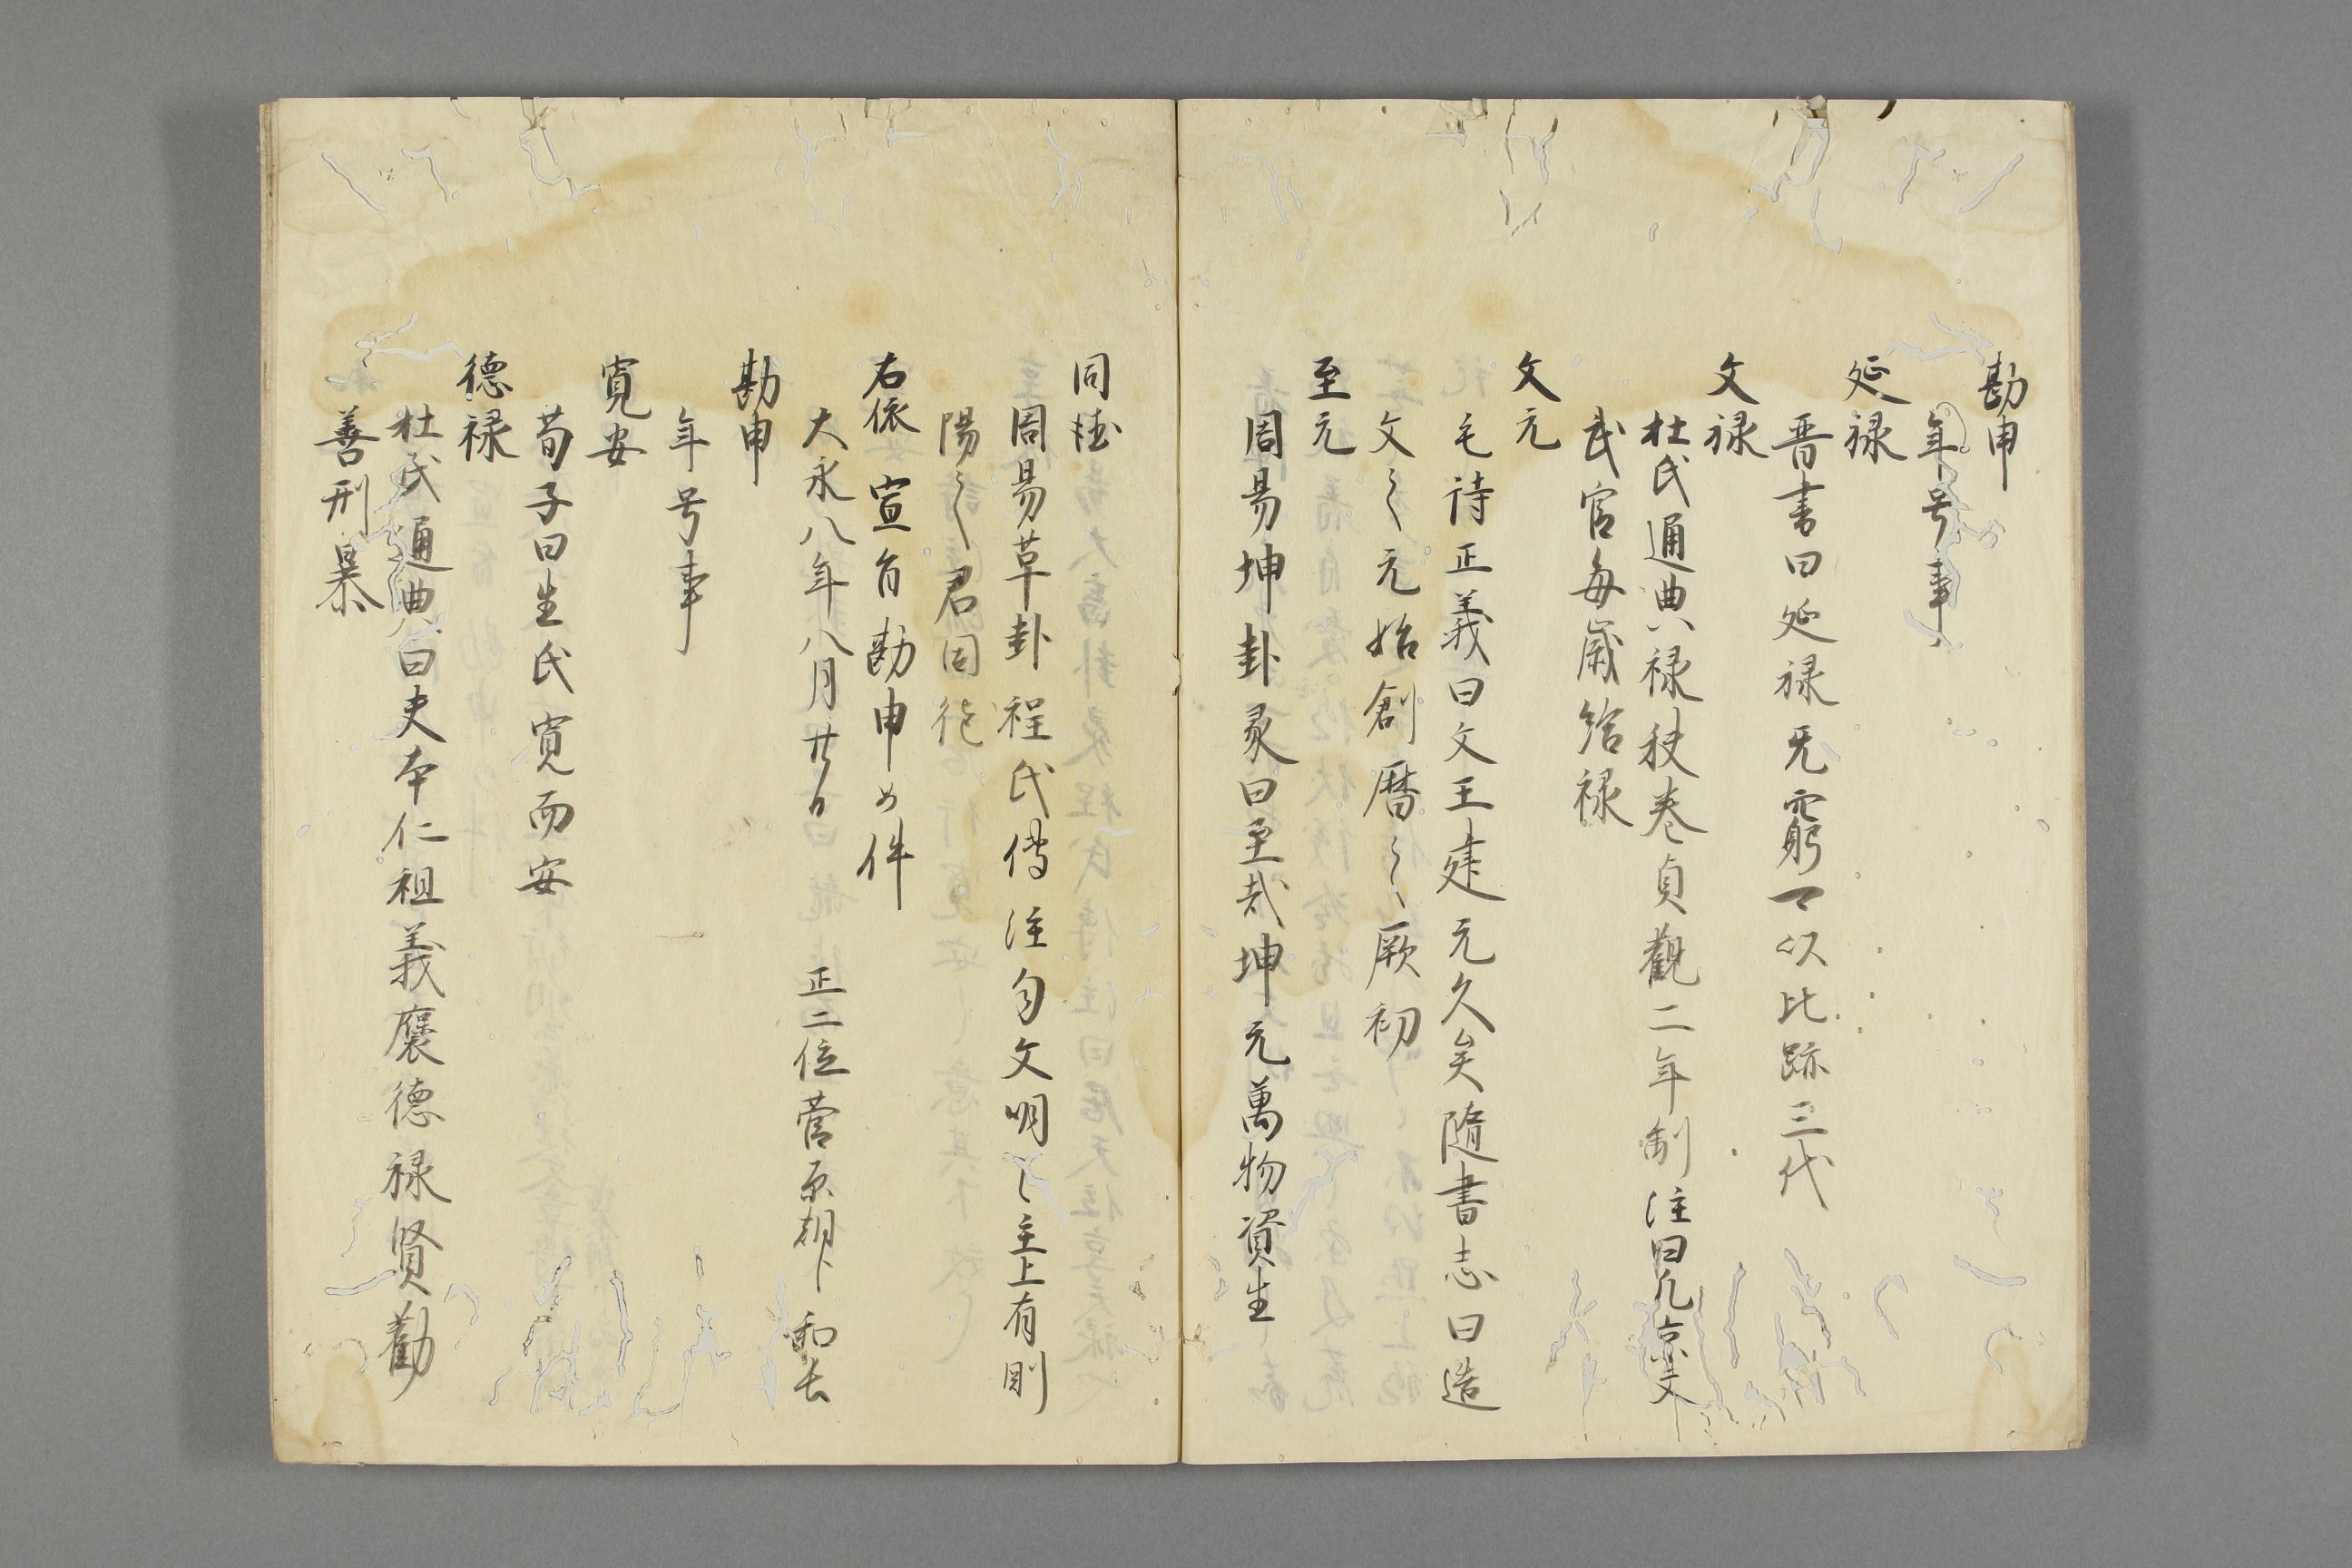 勘申
年号事
延禄
晋書曰延禄无窮可以比跡三代
文禄
杜氏通典八禄秩巻貞觀二年制注曰凡京文
武官毎歳給禄
文元
毛詩正義曰文王建元久矣隨書志曰造
文之元始創暦之厥初
至元
周易坤卦彖曰至哉坤元萬物資生
同徳
周易革卦程氏傳注曰文明之主上有剛
陽之君同徳
右依宣旨勘申如件
大永八年八月廿日 正二位菅原朝臣和長
勘申
年号事
寛安
荀子曰生民寛而安
徳禄
杜氏通典曰夫本仁祖義襃徳禄賢勸
善刑暴